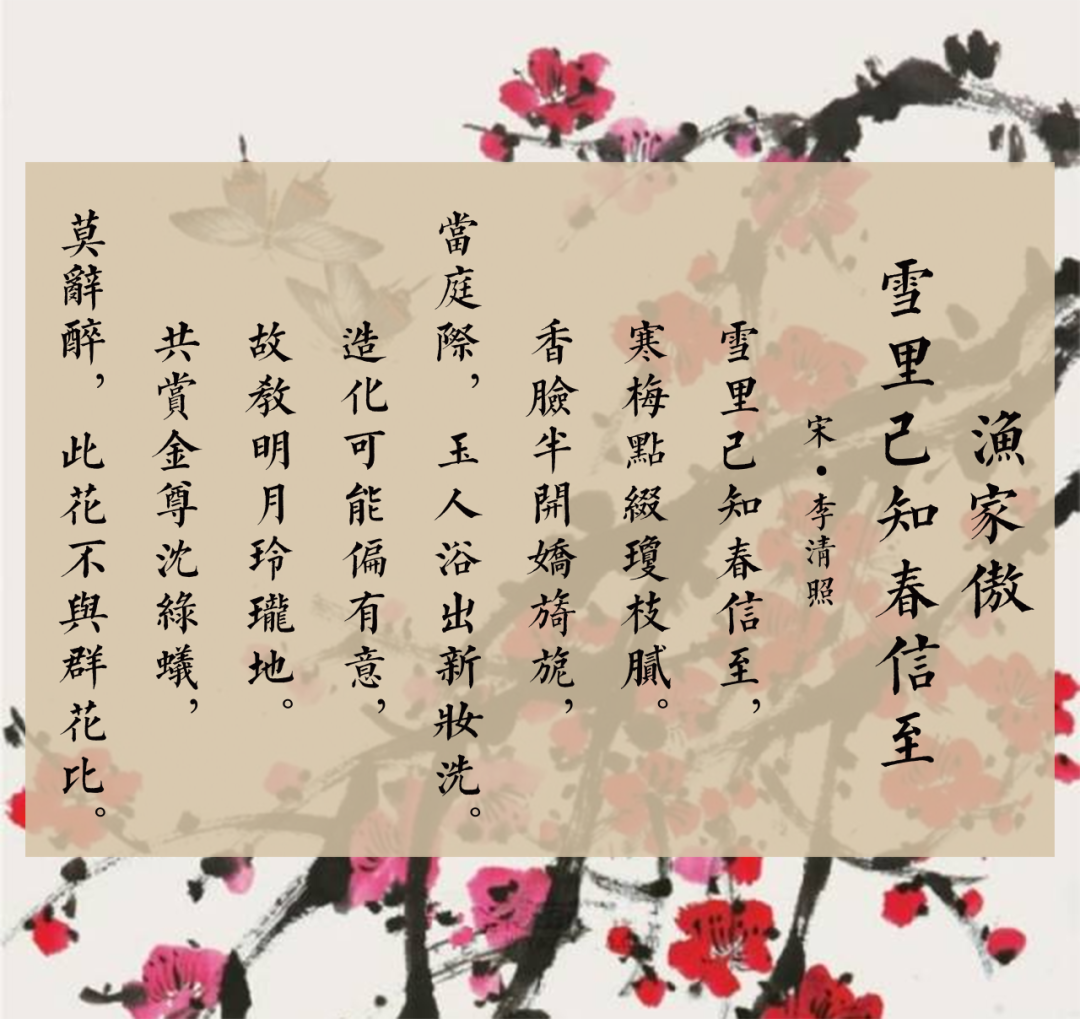 漁家傲
雪里已知春信至
宋·李清照
雪里已知春信至，
寒梅點綴瓊枝膩。
香臉半開嬌旖旎，
當庭際，玉人浴出新妝洗。
造化可能偏有意，
故教明月玲瓏地。
共賞金尊沈綠蟻，
莫辭醉，此花不與群花比。